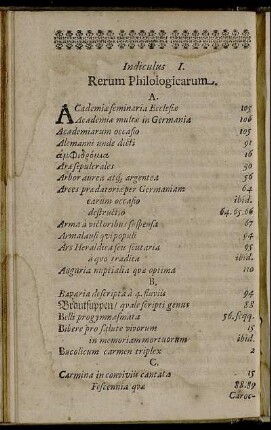 Indiculus I.
Rerum Philologicarum.
A.
ACademiæ seminaria Ecclesiæ 105
Academiæ multæ in Germania 106
Academiarum occasio 105
Alemanni unde dicti 91
ἀμφιδρόμια 16
Aræ sepulcrales 30
Arbor aurea atq; argentea 56
Arces prædatoriæ per Germaniam 64
earum occasio ibid.
destructio 64.65.66
Arma à victoribus suspensa 67
Armalausi qui populi 94
Ars Heraldica seu scutaria 95
à quo tradita ibid.
Auguria nuptialia quæ optima 110
B.
Bavaria descripta à 4. fluviis 94
Brautsuppen/ quale scripti genus 88
Belli progymnasmata 56.seqq.
Bibere pro salute vivorum 15
in memoriam mortuorum ibid.
Bucolicum carmen triplex 2
C.
Carmina in conviviis cantata 15
Fescennia quæ 88.89
Caroc-